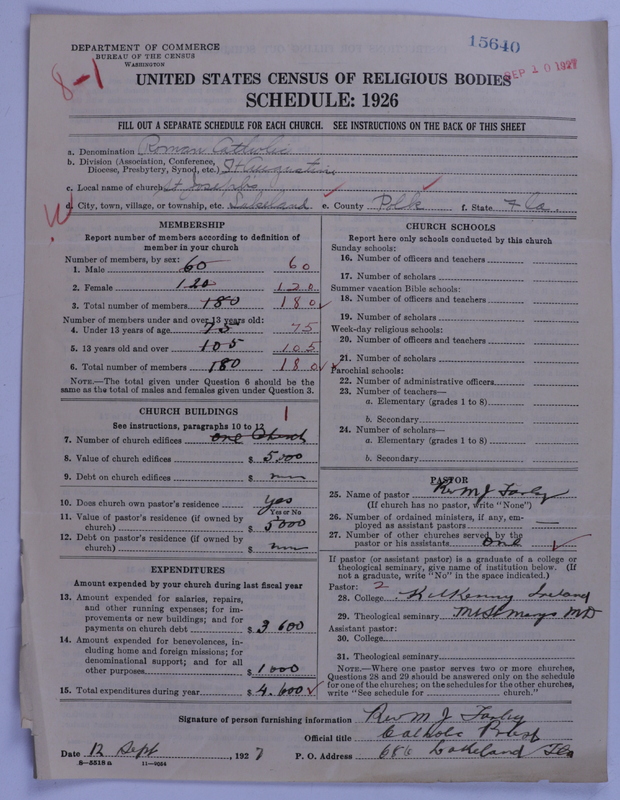 DEPARTMENT OF COMMERCE
BUREAU OF THE CENSUS
WASHINGTON
15640
SEP 10 1927
8-1
UNITED STATES CENSUS OF RELIGIOUS BODIES
SCHEDULE: 1926
FILL OUT A SEPARATE SCHEDULE FOR EACH CHURCH. SEE INSTRUCTIONS ON THE BACK OF THIS SHEET
a. Denomination Roman Catholic
b. Division (Association, Conference,
Diocese, Presbytery, Synod, etc.) St Augustine
c. Local name of church St Joseph's
d. City, town, village, or township, etc. Lakeland e. County Polk f. State Fla.
MEMBERSHIP
Report number of members according to definition of
member in your church
Number of members, by sex:
1. Male 60 60
2. Female 120 120
3. Total number of members 180 180
Number of members under and over 13 years old:
4. Under 13 years of age 75 75
5. 13 years old and over 105 105
6. Total number of members 180 180
NOTE.—The total given under Question 6 should be the
same as the total of males and females given under Question 3.
CHURCH BUILDINGS
See instructions, paragraphs 10 to 12
1
7. Number of church edifices one Church
8. Value of church edifices $ 5000
9. Debt on church edifices $
10. Does church own pastor's residence yes
Yes or No
11. Value of pastor's residence (if owned by
church) $ 5000
12. Debt on pastor's residence (if owned by
church) $
EXPENDITURES
Amount expended by your church during last fiscal year
13. Amount expended for salaries, repairs,
and other running expenses; for im-
provements or new buildings; and for
payments on church debt $ 3600
14. Amount expended for benevolences, in-
cluding home and foreign missions; for
denominational support; and for all
other purposes $ 1000
15. Total expenditures during year $ 4.600
CHURCH SCHOOLS
Report here only schools conducted by this church
Sunday schools:
16. Number of officers and teachers
17. Number of scholars
Summer vacation Bible schools:
18. Number of officers and teachers
19. Number of scholars
Week-day religious schools:
20. Number of officers and teachers
21. Number of scholars
Parochial schools:
22. Number of administrative officers
23. Number of teachers—
a. Elementary (grades 1 to 8)
b. Secondary
24. Number of scholars—
a. Elementary (grades 1 to 8)
b. Secondary
PASTOR
25. Name of pastor Rev M J Farley
(If church has no pastor, write "None")
26. Number of ordained ministers, if any, em-
ployed as assistant pastors —
27. Number of other churches served by the
pastor or his assistants one
If pastor (or assistant pastor) is a graduate of a college or
theological seminary, give name of institution below. (If
not a graduate, write "No" in the space indicated.)
Pastor: 2
28. College Kilkenny Ireland
29. Theological seminary Mt St Marys MD
Assistant pastor:
30. College
31. Theological seminary
NOTE.—Where one pastor serves two or more churches,
Questions 28 and 29 should be answered only on the schedule
for one of the churches; on the schedules for the other churches,
write "See schedule for church."
Signature of person furnishing information Rev M J Farley
Official title Catholic Priest
Date 12 Sept, 1927 P. O. Address 686 Lakeland Fla
8-5518 a 11-9064